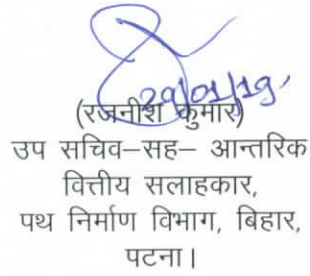 29/01/19
(रजनीश कुमार)
उप सचिव–सह– आन्तरिक
वित्तीय सलाहकार,
पथ निर्माण विभाग, बिहार,
पटना।